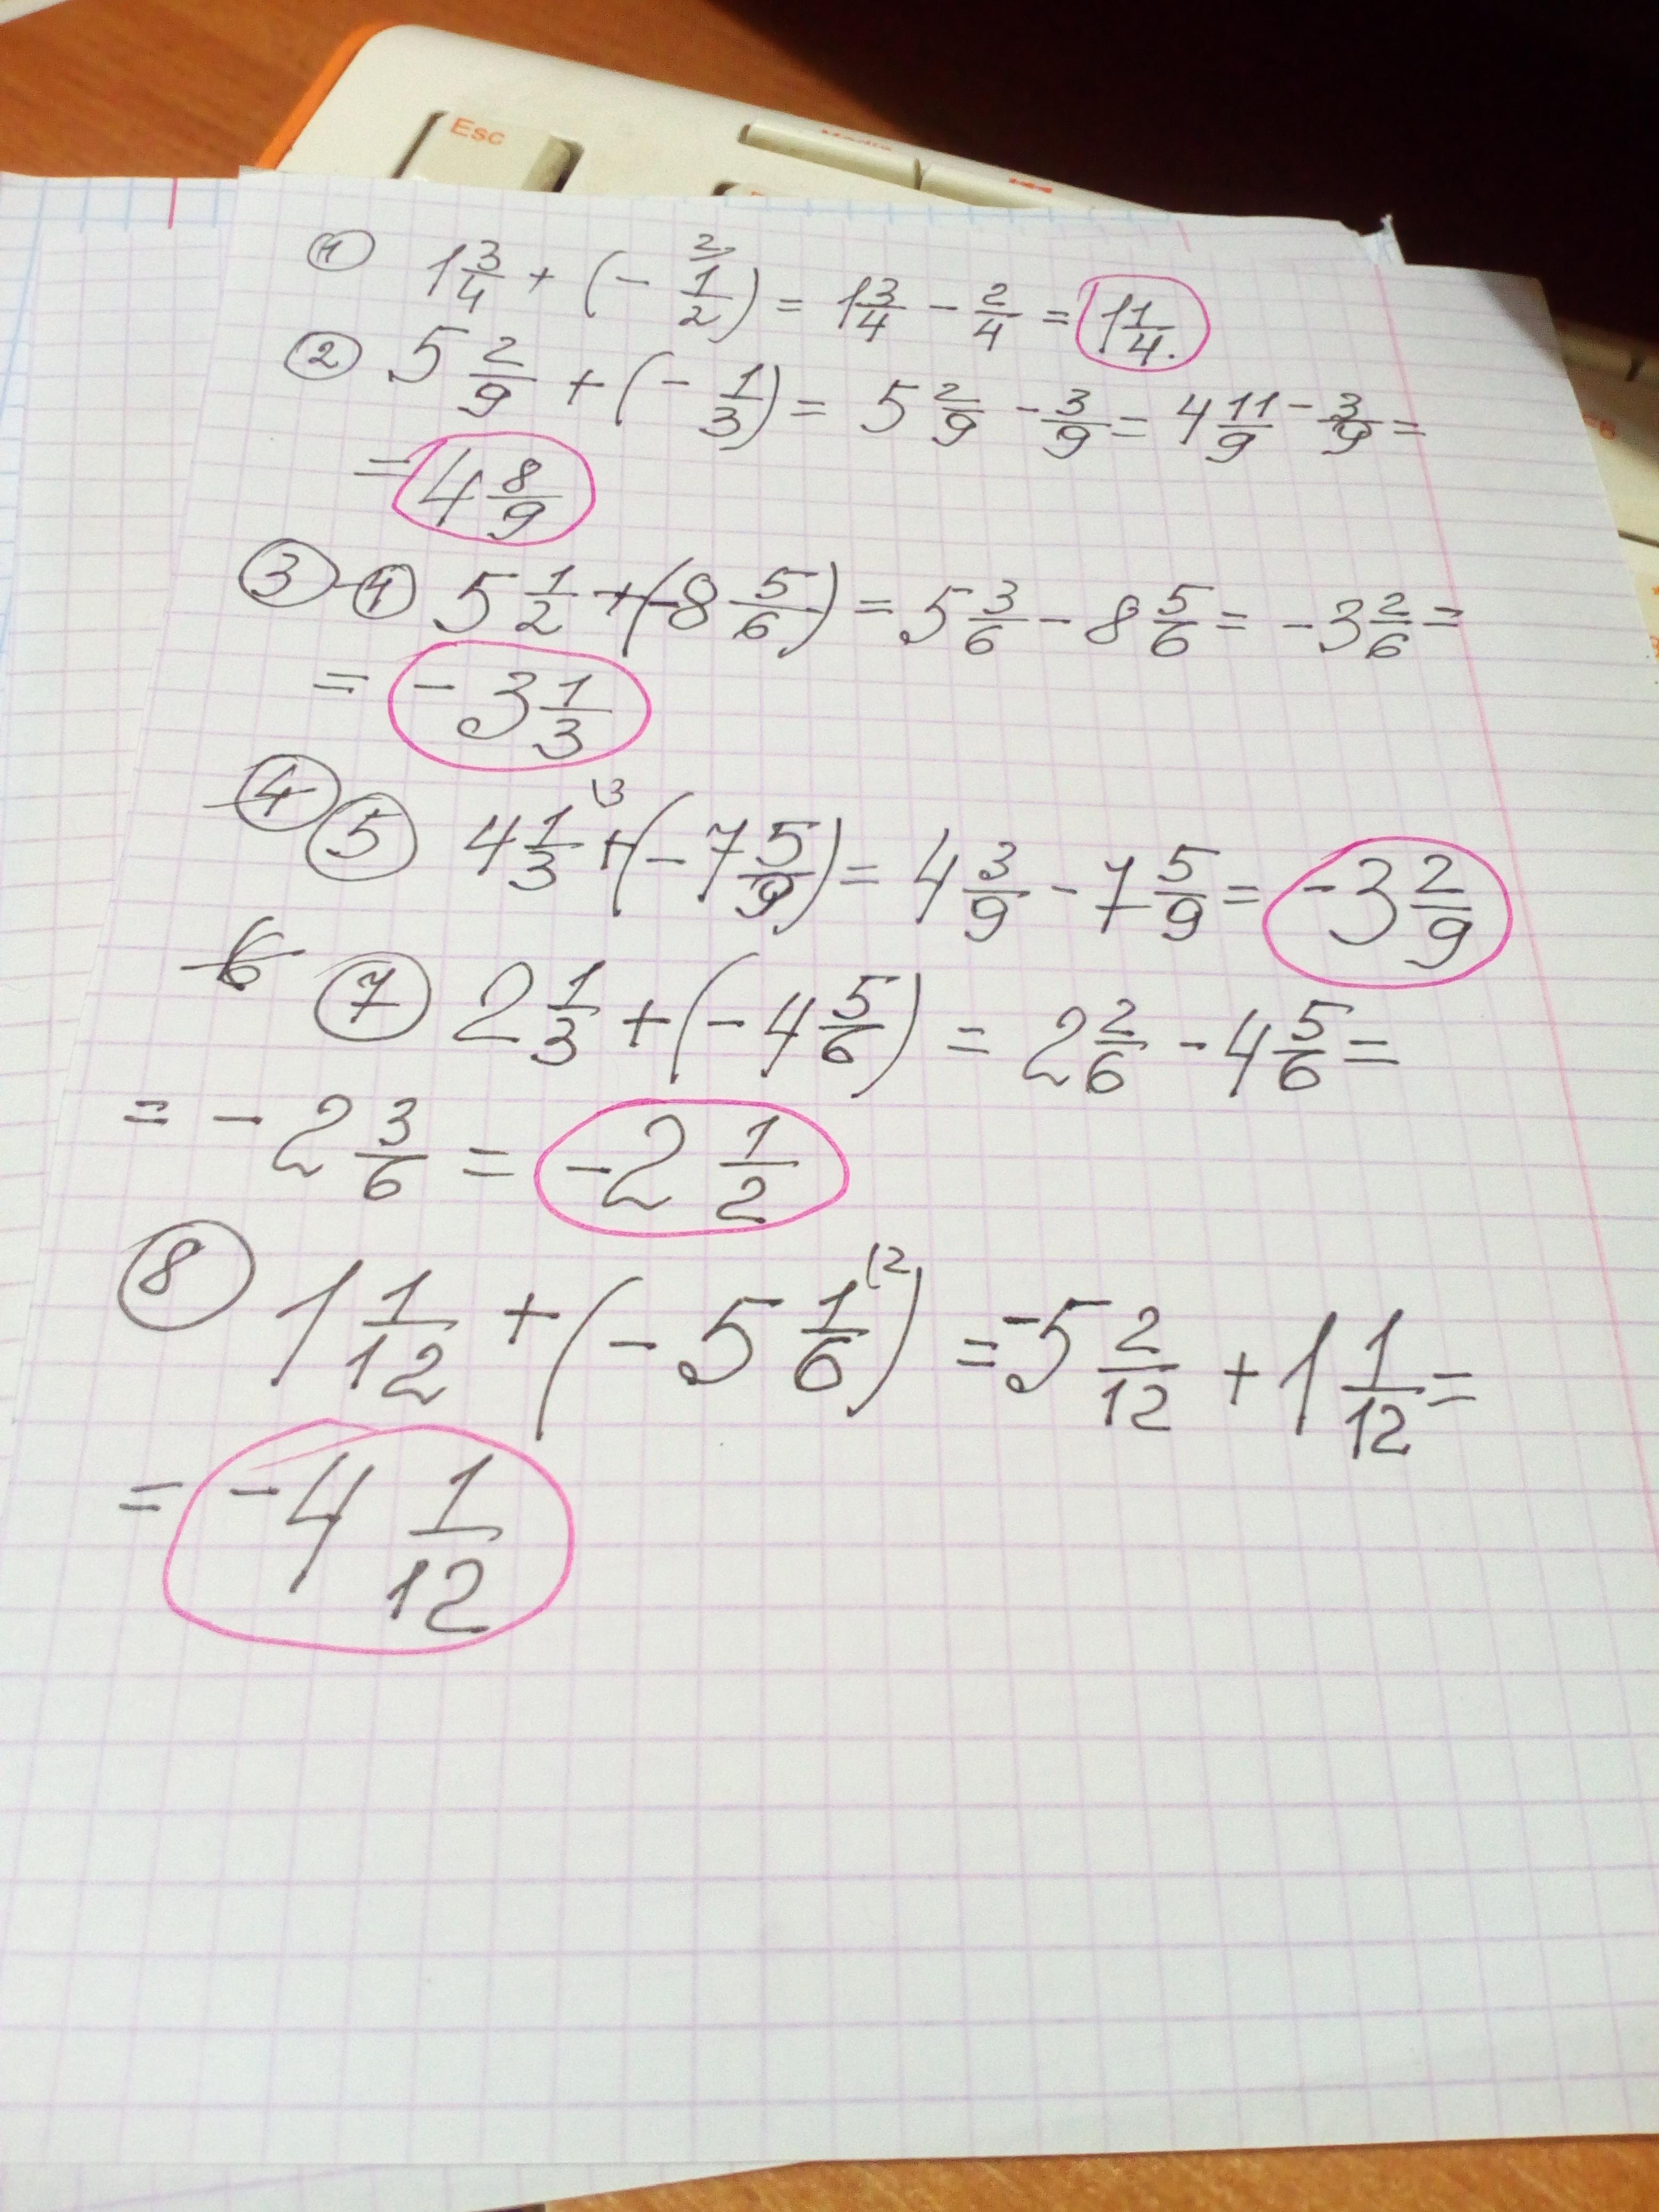 Esc
① 1 3/4 + (- 1/2 ²) = 1 3/4 - 2/4 = 1 1/4.
② 5 2/9 + (- 1/3) = 5 2/9 - 3/9 = 4 11/9 - 3/9 =
= 4 8/9
③ ④ 5 1/2 + (-8 5/6) = 5 3/6 - 8 5/6 = -3 2/6 =
= -3 1/3
④ ⑤ 4 1/3 \3 + (-7 5/9) = 4 3/9 - 7 5/9 = -3 2/9
6 ⑦ 2 1/3 + (-4 5/6) = 2 2/6 - 4 5/6 =
= -2 3/6 = -2 1/2
⑧ 1 1/12 + (-5 1/6 \2) = -5 2/12 + 1 1/12 =
= -4 1/12